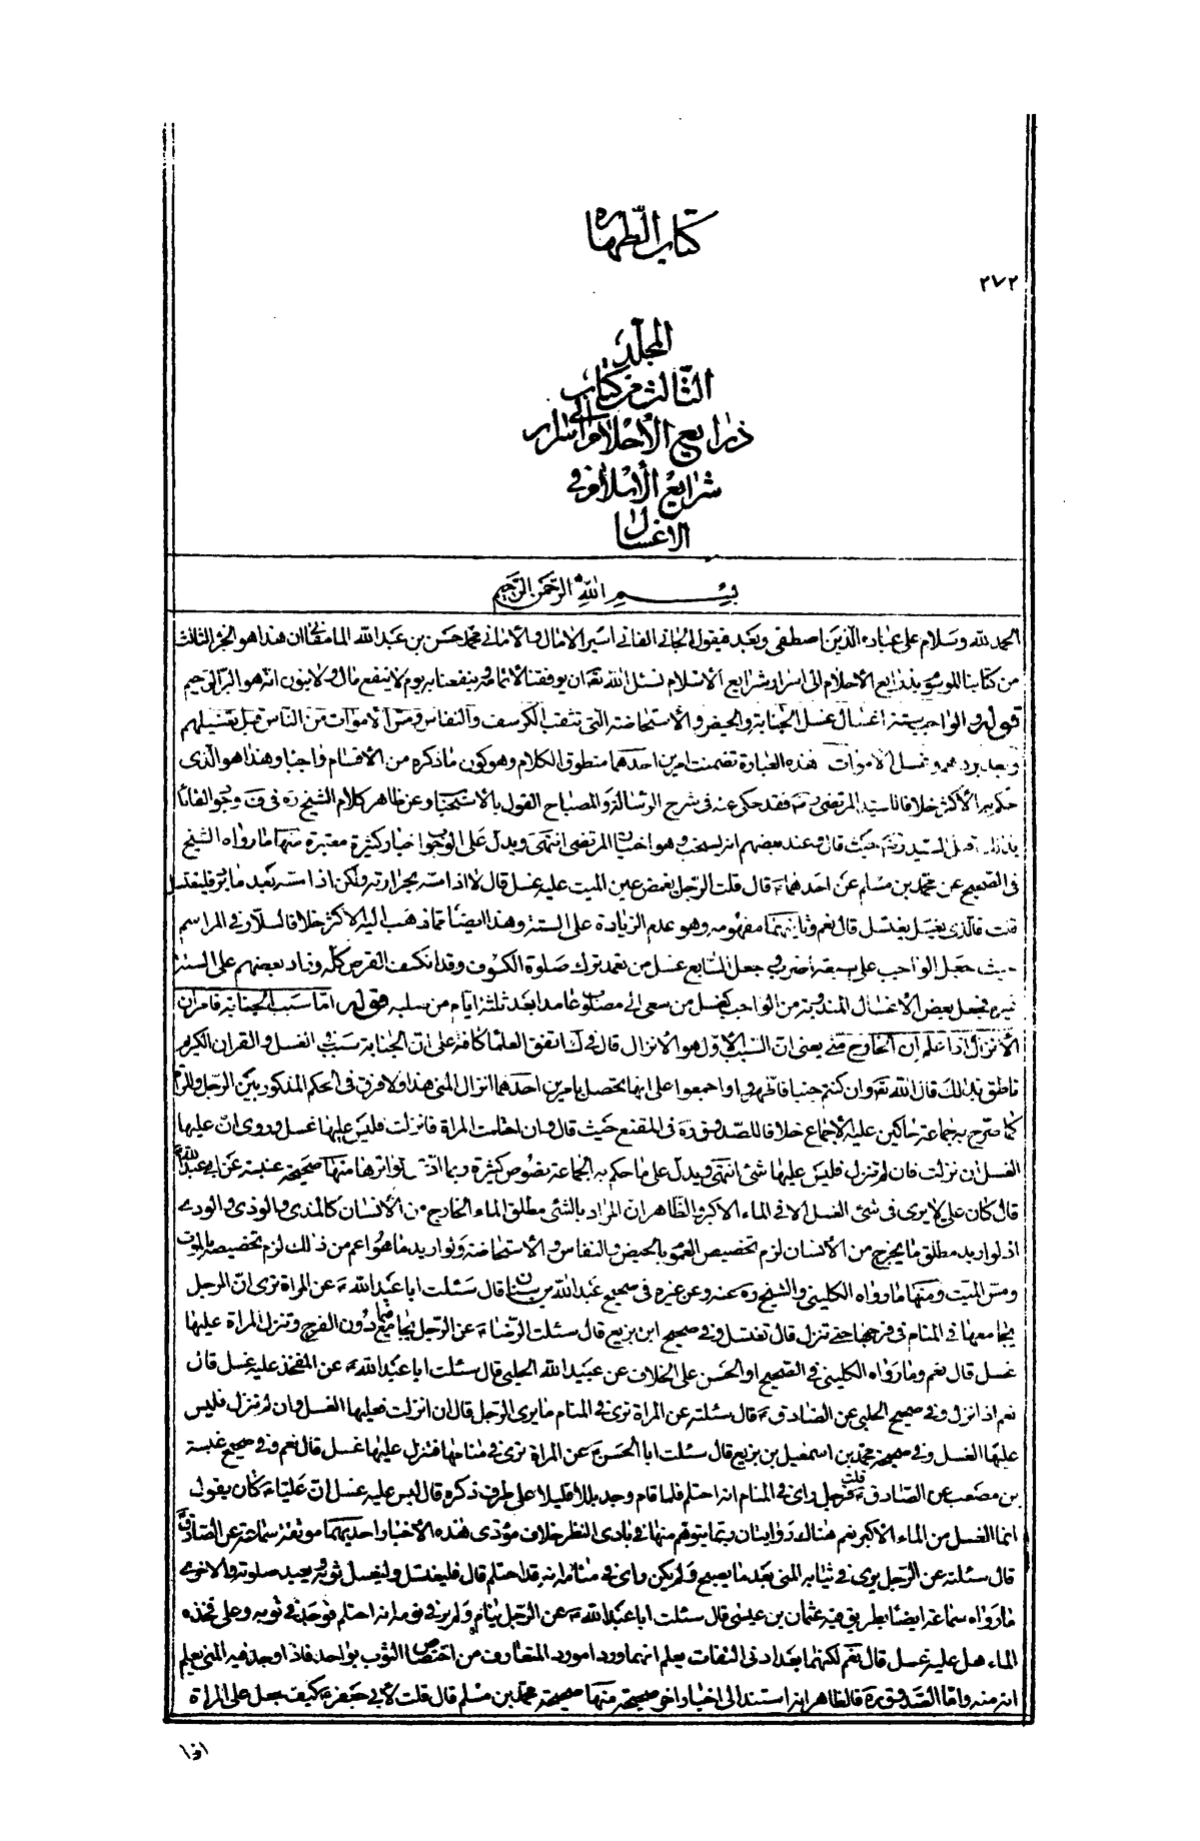 كتاب الطهارة
٢٧٢
المجلد
الثالث من كتاب
ذرايع الأحلام الى اسرار
شرايع الأسلام في
الاغسال
بسم الله الرحمن الرحيم
الحمد لله وسلام على عباده الذين اصطفى وبعد فيقول الجاني الفاني اسير الامال والأماني محمد حسن بن عبد الله المامقاني ان هذا هو الجزء الثالث
من كتابنا الموسوم بذرايع الأحلام الى اسرار شرايع الأسلام نسئل الله تعالى ان يوفقنا لأتمامه وينفعنا به يوم لا ينفع مال ولا بنون انه هو البر الرحيم
قوله والواجب ستة اغسال غسل الجنابة والحيض والأستحاضة التي تثقب الكرسف والنفاس ومس الأموات من الناس قبل تغسيلهم
وبعد بردهم وغسل الأموات هذه العبارة تضمنت امرين احدهما منطوق الكلام وهو كون ما ذكره من الأقسام واجبا وهذا هو الذي
حكم به الأكثر خلافا للسيد المرتضى فقد حكى عنه في شرح الرسالة والمصباح القول بالاستحباب وعن ظاهر كلام الشيخ ره في
حيث قال وعند بعضهم انه يستحب وهو اختيار المرتضى انتهى ويدل على الوجوب اخبار كثيرة معتبرة منها ما رواه الشيخ
في الصحيح عن محمد بن مسلم عن احدهما ع قال قلت الرجل يغمض عين الميت عليه غسل قال لا اذا مسه بحرارته ولكن اذا مسه بعد ما برد فليغتسل
قلت فالذي يغسله يغتسل قال نعم وثانيهما مفهومه وهو عدم الزيادة على الستة وهذا ايضا مما ذهب اليه الاكثر خلافا لسلار في المراسم
حيث جعل الواجب على سبعة اضرب في جعل السابع غسل من تعمد ترك صلوة الكسوف وقد انكسف القرص كله وزاد بعضهم على الستة
غيره فجعل بعض الأغسال المندوبة من الواجب كغسل من سعى الى مصلوب عامدا بعد ثلثة ايام من صلبه قوله اما سبب الجنابة فامران
الأنزال اذا علم ان الخارج مني يعني ان السبب الأول هو الأنزال قال في ك اتفق العلماء كافة على ان الجنابة سبب الغسل والقران الكريم
ناطق بذلك قال الله تعالى وان كنتم جنبا فاطهروا واجمعوا على انها تحصل بامرين احدهما انزال المني هذا ولا فرق في الحكم المذكور بين الرجل والمرأة
كما صرح به جماعة حاكين عليه الأجماع خلافا للصدوق ره في المقنع حيث قال وان احتلمت المراة فانزلت فليس عليها غسل وروى ان عليها
الغسل ان نزلت فان لم تنزل فليس عليها شئ انتهى ويدل على ما حكم به الجماعة نصوص كثيرة وربما ادعى تواترها منها صحيحة عنبسة عن ابي عبد الله ع
قال كان علي ع لا يرى في شئ الغسل الا في الماء الاكبر والظاهر ان المراد بالشئ مطلق الماء الخارج من الأنسان كالمذي والوذي والودي
اذ لو اريد مطلق ما يخرج من الأنسان لزم تخصيص العموم بالحيض والنفاس والأستحاضة ولو اريد ما هو اعم من ذلك لزم تخصيصه بالموت
ومس الميت ومنها ما رواه الكليني والشيخ ره عنه وعن غيره في صحيح عبد الله بن سنان قال سئلت ابا عبد الله ع عن المراة ترى ان الرجل
يجامعها في المنام في فرجها حتى تنزل قال تغتسل وفي صحيح ابن بزيع قال سئلت الرضا ع عن الرجل يجامع المراة فيما دون الفرج وتنزل المراة عليها
غسل قال نعم وما رواه الكليني في الصحيح او الحسن على الخلاف عن عبيد الله الحلبي قال سئلت ابا عبد الله ع عن المفخذ عليه غسل قال
نعم اذا انزل وفي صحيح الحلبي عن الصادق ع قال سئلته عن المراة ترى في المنام ما يرى الرجل قال ان انزلت فعليها الغسل وان لم تنزل فليس
عليها الغسل وفي صحيحة محمد بن اسمعيل بن بزيع قال سئلت ابا الحسن ع عن المراة ترى في منامها فتنزل عليها غسل قال نعم وفي صحيح عنبسة
بن مصعب عن الصادق ع قلت رجل راى في المنام انه احتلم فلما قام وجد بللا قليلا على طرف ذكره قال ليس عليه غسل ان عليا ع كان يقول
انما الغسل من الماء الاكبر نعم هناك روايتان ربما يتوهم منهما في بادى النظر خلاف مؤدى هذه الأخبار احديهما موثقة سماعة عن الصادق ع
قال سئلته عن الرجل يرى في ثيابه المني بعد ما يصبح ولم يكن راى في منامه انه قد احتلم قال فليغتسل وليغسل ثوبه ويعيد صلوته والاخرى
ما رواه سماعة ايضا بطريق فيه عثمان بن عيسى قال سئلت ابا عبد الله ع عن الرجل ينام ولم ير في نومه انه احتلم فوجد في ثوبه وعلى فخذه
الماء هل عليه غسل قال نعم لكنهما بعد ادنى التفات يعلم انهما وردا مورد المتعارف من اختصاص الثوب بواحد فاذا وجد فيه المني يعلم
انه منه واما الصدوق ره فالظاهر انه استند الى اخبار اخر صحيحة منها صحيحة محمد بن مسلم قال قلت لأبي جعفر ع كيف جعل على المراة